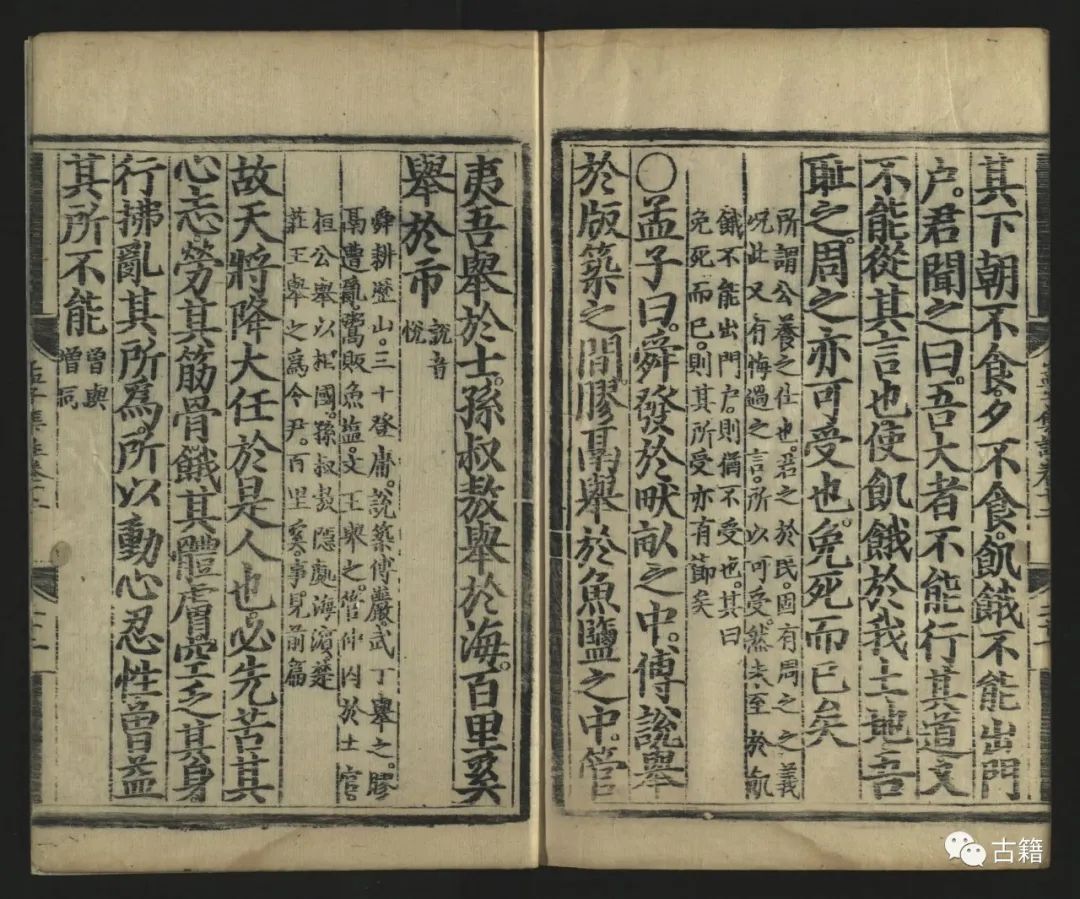 其下朝不食。夕不食。飢餓不能出門
户。君聞之曰。吾大者不能行其道。又
不能從其言也。使飢餓於我土地。吾
耻之。周之亦可受也。免死而已矣
所謂公養之仕也。君之於民。固有周之之義
况此又有悔過之言。所以可受。然未至於飢
餓不能出門户。則猶不受也。其曰
免死而已。則其所受亦有節矣
○孟子曰。舜發於畎畝之中。傅說舉
於版築之間。膠鬲舉於魚鹽之中。管
夷吾舉於士。孫叔敖舉於海。百里奚
舉於市
說音
悅
舜耕歷山。三十登庸。說築傅巖。武丁舉之。膠
鬲遭亂。鬻販魚盐。文王舉之。管仲囚於士官。
桓公舉以相國。孫叔敖隱處海濱。楚
莊王舉之爲令尹。百里奚。事見前篇
故天將降大任於是人也。必先苦其
心志。勞其筋骨。餓其體膚。空乏其身。
行拂亂其所爲。所以動心忍性。曾益
其所不能
曾與
增同
古籍